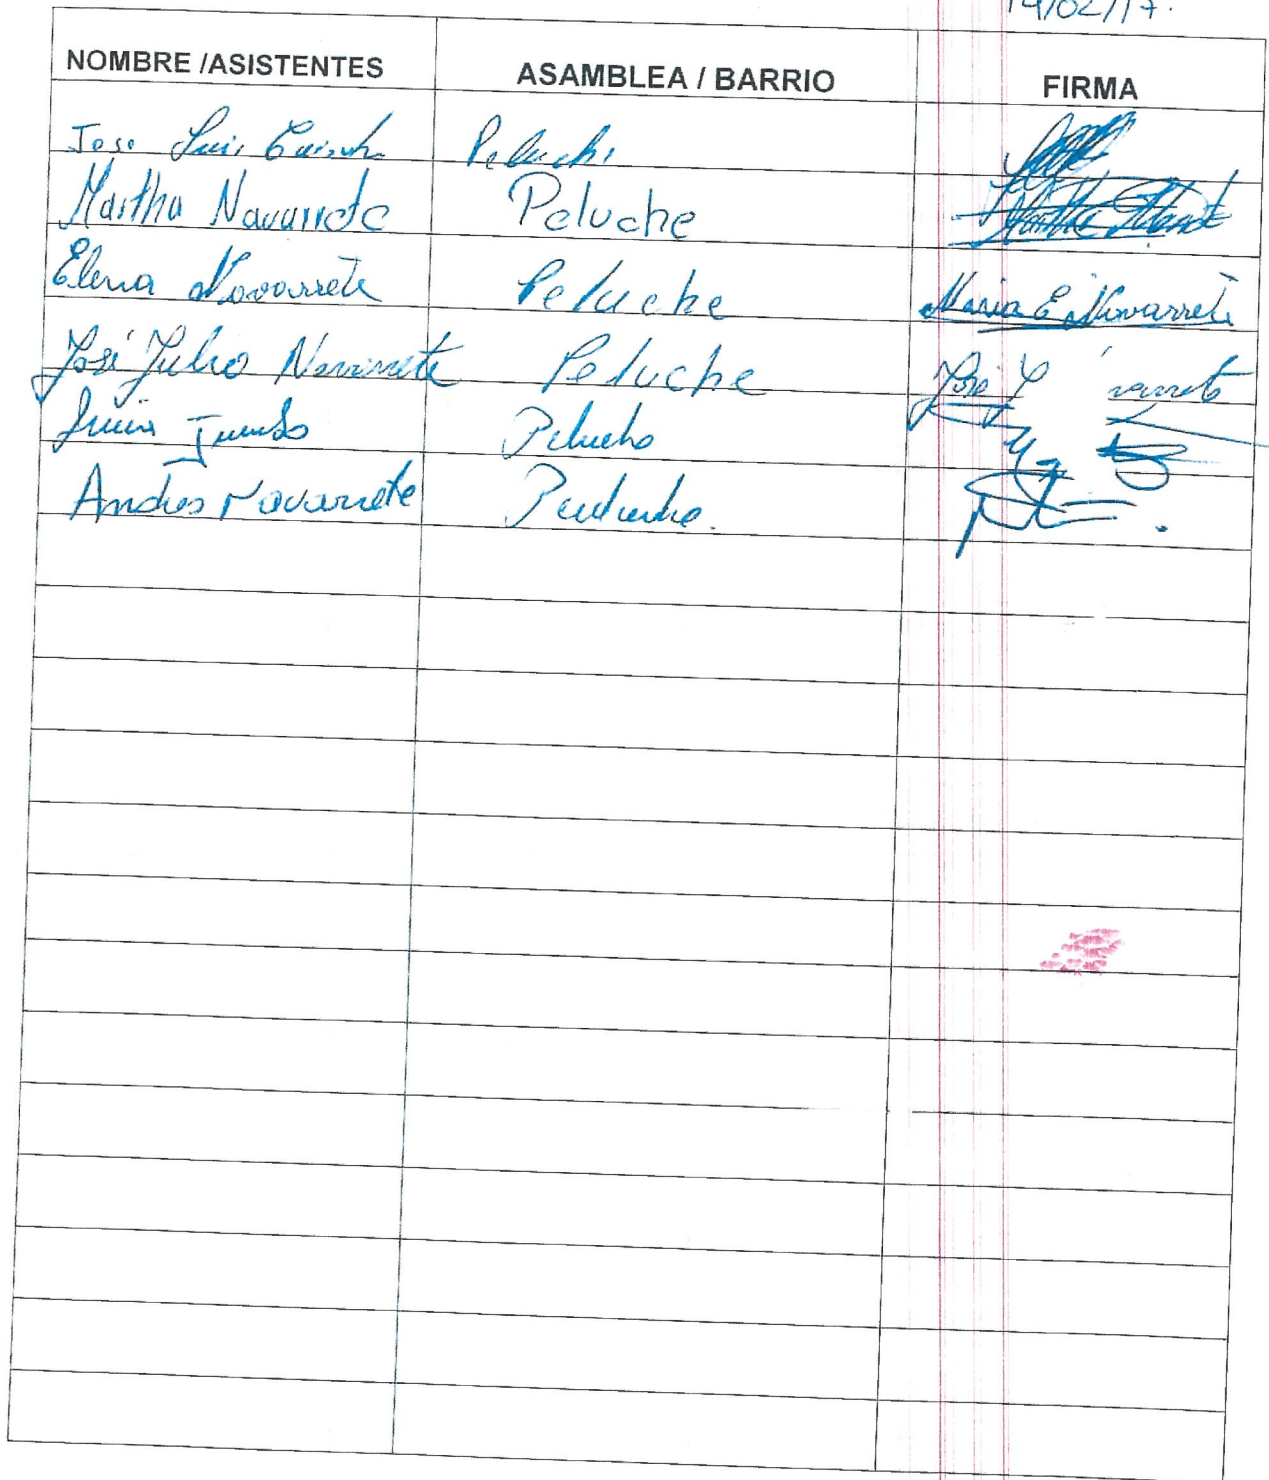 19/02/17.
NOMBRE /ASISTENTES ASAMBLEA / BARRIO FIRMA
Jose Luis Peluchi
Martha Navarrete Peluche
Elena Navarrete Peluche Maria E Navarrete
José Julio Navarrete Peluche José
Pelucho
Andres Navarrete